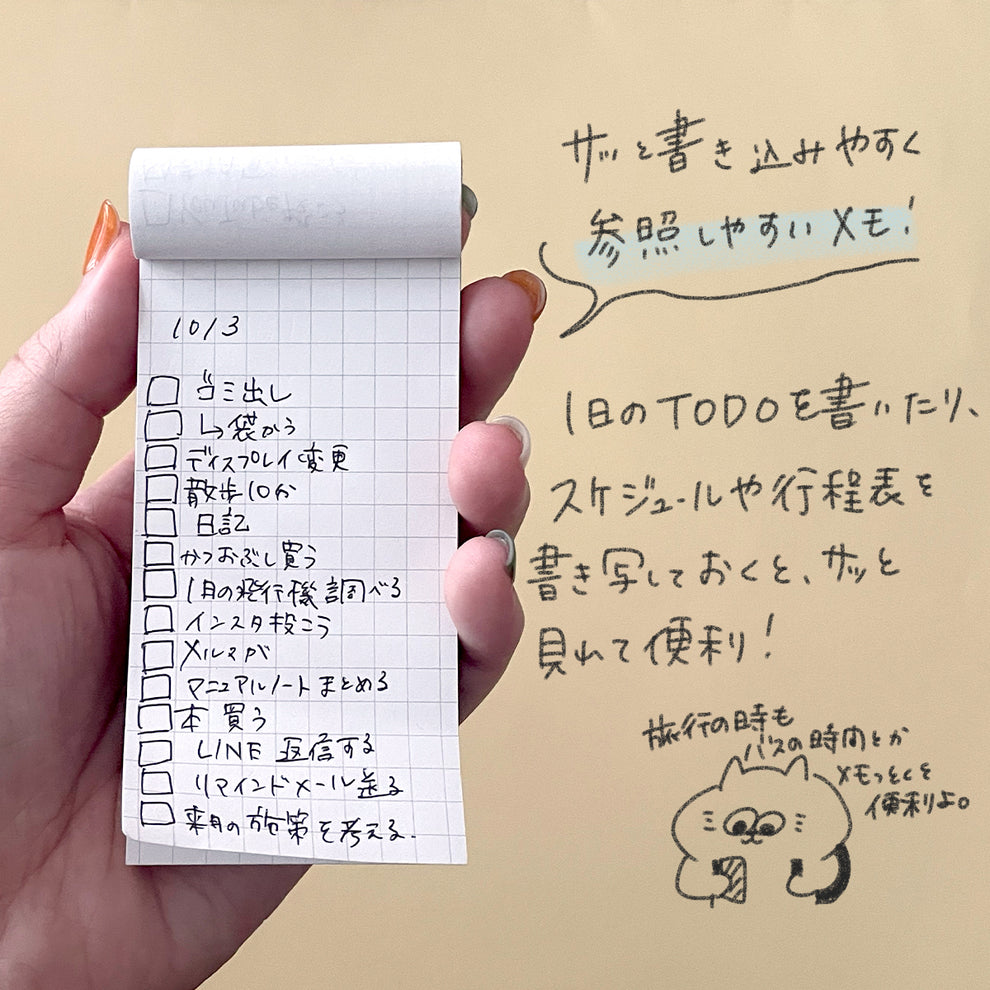 10/3
ゴミ出し
↳袋かう
ディスプレイ変更
散歩10分
日記
かつおぶし買う
1月の飛行機調べる
インスタ投こう
メルマガ
マニュアルノートまとめる
本買う
LINE 返信する
リマインドメール送る
来月の施策を考える.
サッと書き込みやすく
参照しやすいメモ!
1日のTODOを書いたり、
スケジュールや行程表を
書き写しておくと、サッと
見れて便利!
旅行の時も
バスの時間とか
メモっとくと
便利よ。